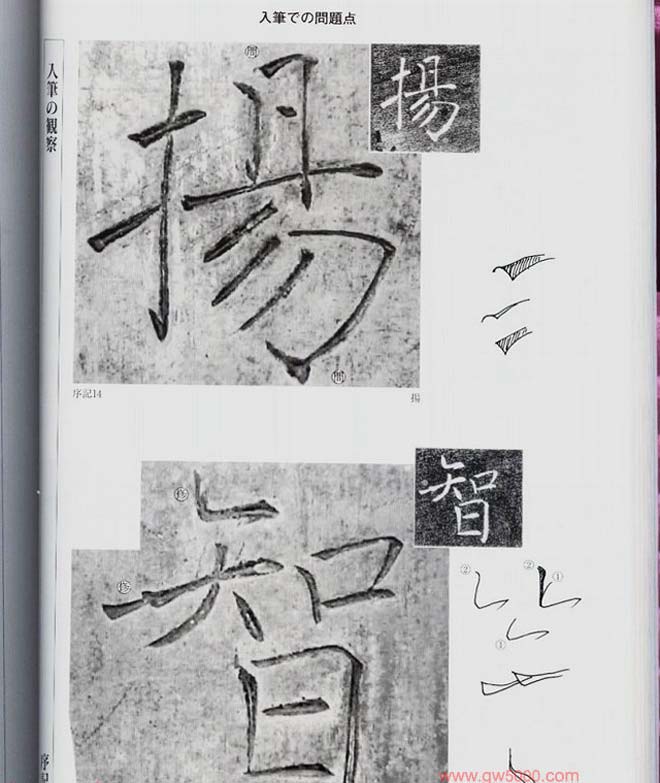 入筆での問題点
入筆の観察
揚
揚
序記14
揚
智
智
②
②
①
①
序記
www.qw5000.com